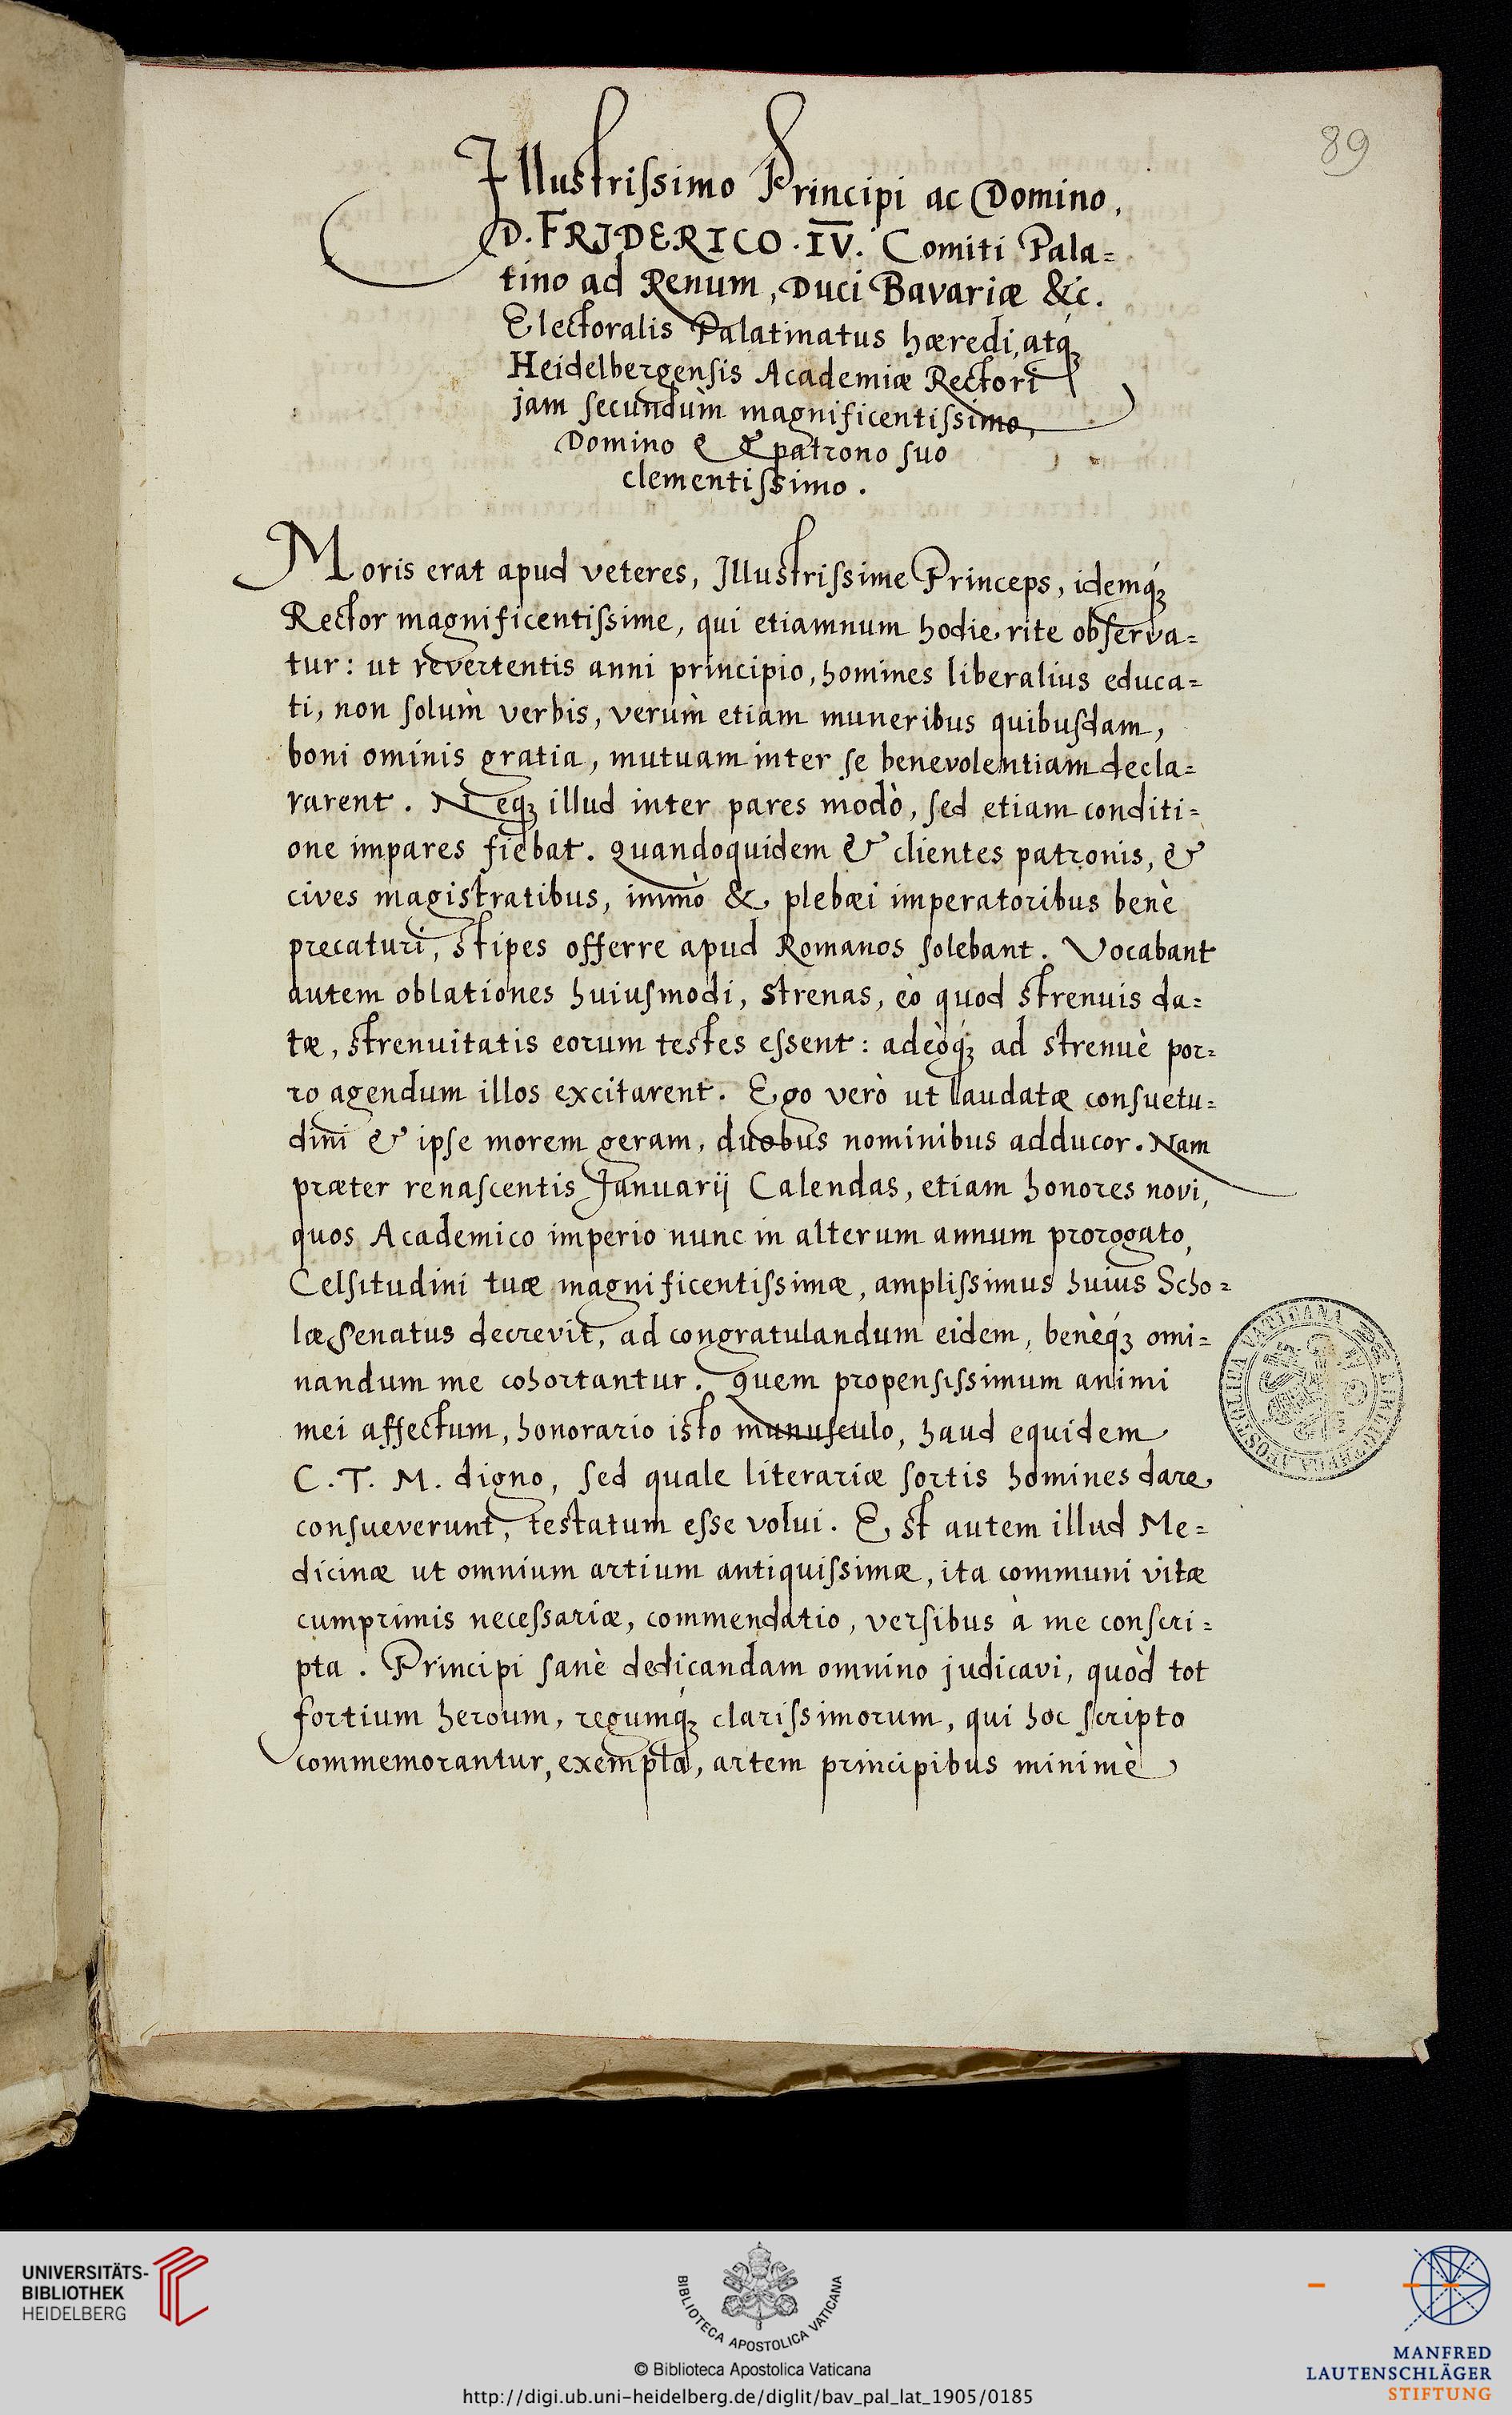 89
Illustrissimo Principi ac Domino,
D. FRIDERICO . IV. Comiti Pala=
tino ad Renum, Duci Bavariæ &c.
Electoralis Palatinatus hæredi, atq́;
Heidelbergensis Academiæ Rectori
jam secundùm magnificentissimo,
Domino & patrono suo
clementissimo.
Moris erat apud veteres, Illustrissime Princeps, idemq́;
Rector magnificentissime, qui etiamnum hodie rite observa=
tur: ut revertentis anni principio, homines liberalius educa=
ti, non solùm verbis, verùm etiam muneribus quibusdam,
boni ominis gratia, mutuam inter se benevolentiam decla=
rarent. Neq; illud inter pares modò, sed etiam conditi=
one impares fiebat. Quandoquidem & clientes patronis, &
cives magistratibus, immò & plebæi imperatoribus benè
precaturi, stipes offerre apud Romanos solebant. Vocabant
autem oblationes huiusmodi, strenas, eò quod strenuis da=
tæ, strenuitatis eorum testes essent: adeòq́; ad strenuè por=
ro agendum illos excitarent. Ego verò ut laudatæ consuetu=
dini & ipse morem geram, duobus nominibus adducor. Nam
præter renascentis Januarij Calendas, etiam honores novi,
quos Academico imperio nunc in alterum annum prorogato,
Celsitudini tuæ magnificentissimæ, amplissimus huius Scho=
læ Senatus decrevit, ad congratulandum eidem, benèq́; omi=
nandum me cohortantur. Quem propensissimum animi
mei affectum, honorario isto munusculo, haud equidem
C. T. M. digno, sed quale literariæ sortis homines dare
consueverunt, testatum esse volui. Est autem illud Me=
dicinæ ut omnium artium antiquissimæ, ita communi vitæ
cumprimis necessariæ, commendatio, versibus à me conscri=
pta. Principi sanè dedicandam omnino judicavi, quòd tot
fortium heroum, regumq́; clarissimorum, qui hoc scripto
commemorantur, exempla, artem principibus minimè
UNIVERSITÄTS-
BIBLIOTHEK
HEIDELBERG
BIBLIOTECA APOSTOLICA VATICANA
© Biblioteca Apostolica Vaticana
http://digi.ub.uni-heidelberg.de/diglit/bav_pal_lat_1905/0185
MANFRED
LAUTENSCHLÄGER
STIFTUNG